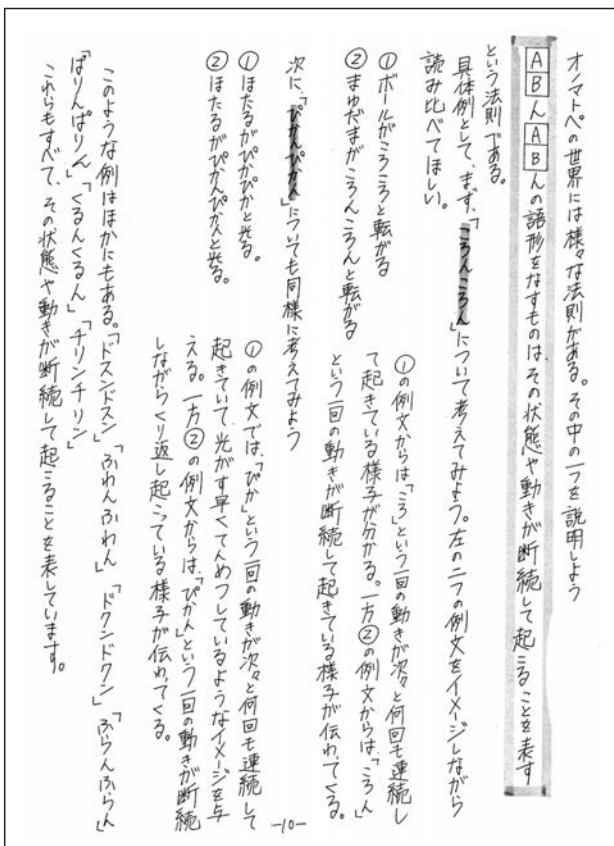 オノマトペの世界には様々な法則がある。その中の一つを説明しよう
ABんABんの語形をなすものは、その状態や動きが断続して起こることを表す
という法則である。
具体例として、まず、「ころんころん」について考えてみよう。左の二つの例文をイメージしながら
読み比べてほしい。
①ボールがころころと転がる
②まゆだまがころんころんと転がる
①の例文からは「ころ」という一回の動きが次々と何回も連続し
て起きている様子が分かる。一方②の例文からは、「ころん」
という一回の動きが断続して起きている様子が伝わってくる。
次に、「ぴかんぴかん」についても同様に考えてみよう
①ほたるがぴかぴかと光る。
②ほたるがぴかんぴかんと光る。
①の例文では、「ぴか」という一回の動きが次々と何回も連続して
起きていて、光がす早くてんめつしているようなイメージを与
える。一方②の例文からは、「ぴかん」という一回の動きが断続
しながらくり返し起こっている様子が伝わってくる。
このような例はほかにもある。「ドスンドスン」「ふわんふわん」「ドクンドクン」「ぶらんぶらん」
「ぱりんぱりん」「くるんくるん」「チリンチリン」
これらもすべて、その状態や動きが断続して起こることを表しています。
-10-